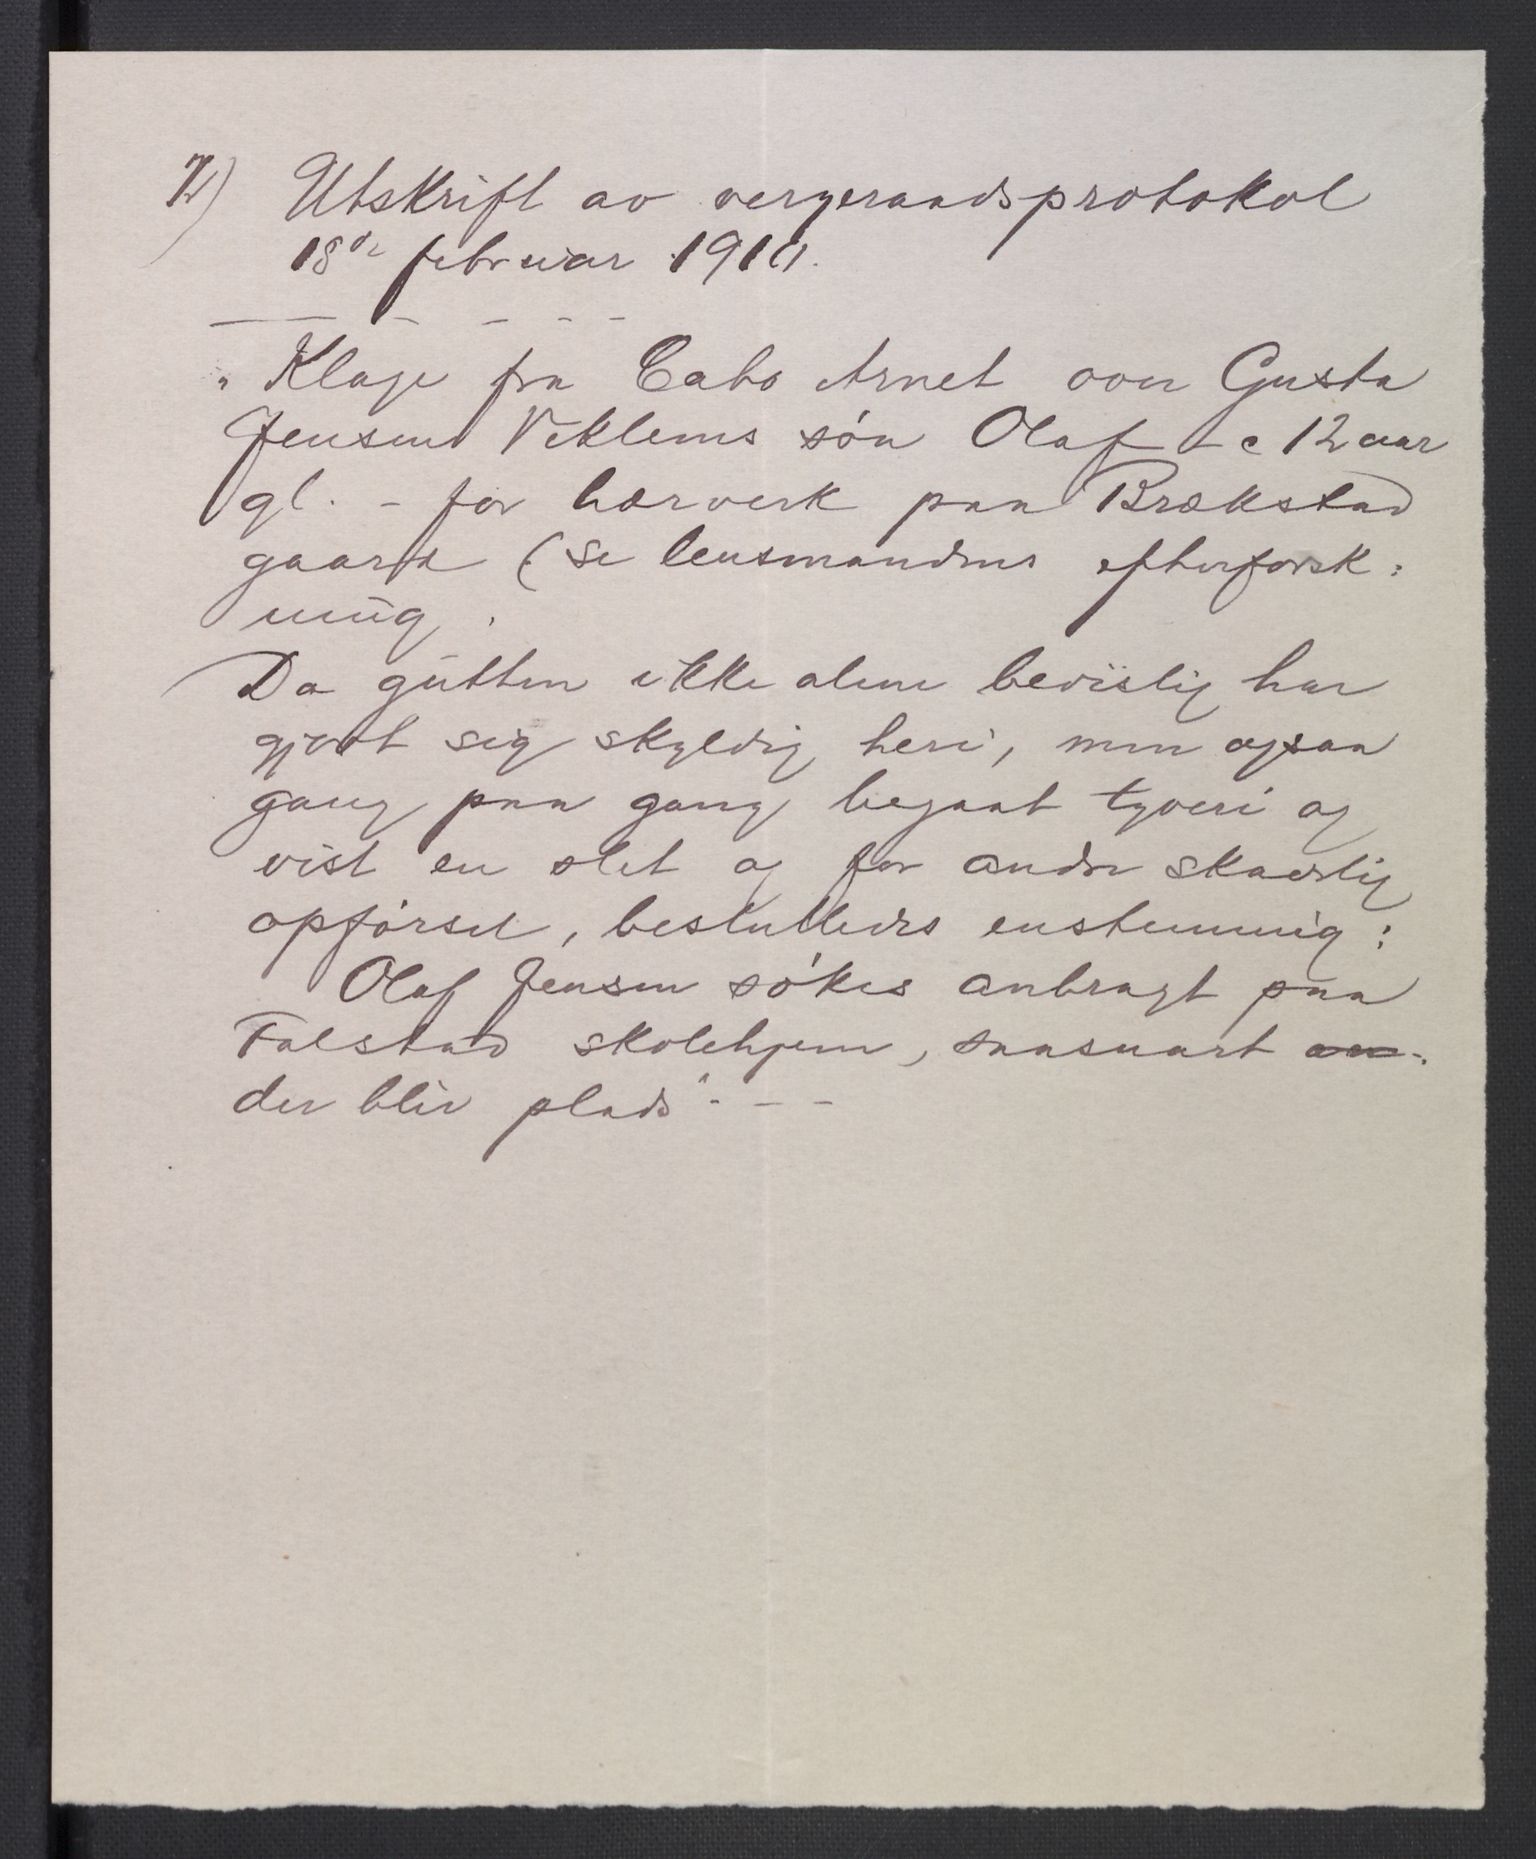 Utskrift av vergeraadsprotokol
18de februar 1910.
"Klage fra Cabo Arnet over Gusta
Jensens Veklems søn Olaf - c 12 aar
gl. - for hærverk paa Brækstad
gaard (se lensmandens efterforsk:
ning.
Da gutten ikke alene bevislig har
gjort sig skyldig heri, men ogsaa
gang paa gang begaat tyveri og
vist en slet og for andre skadelig
opførsel, besluttedes enstemmig:
Olaf Jensen søkes anbragt paa
Falstad skolehjem, saasnart
der blir plads". - - -